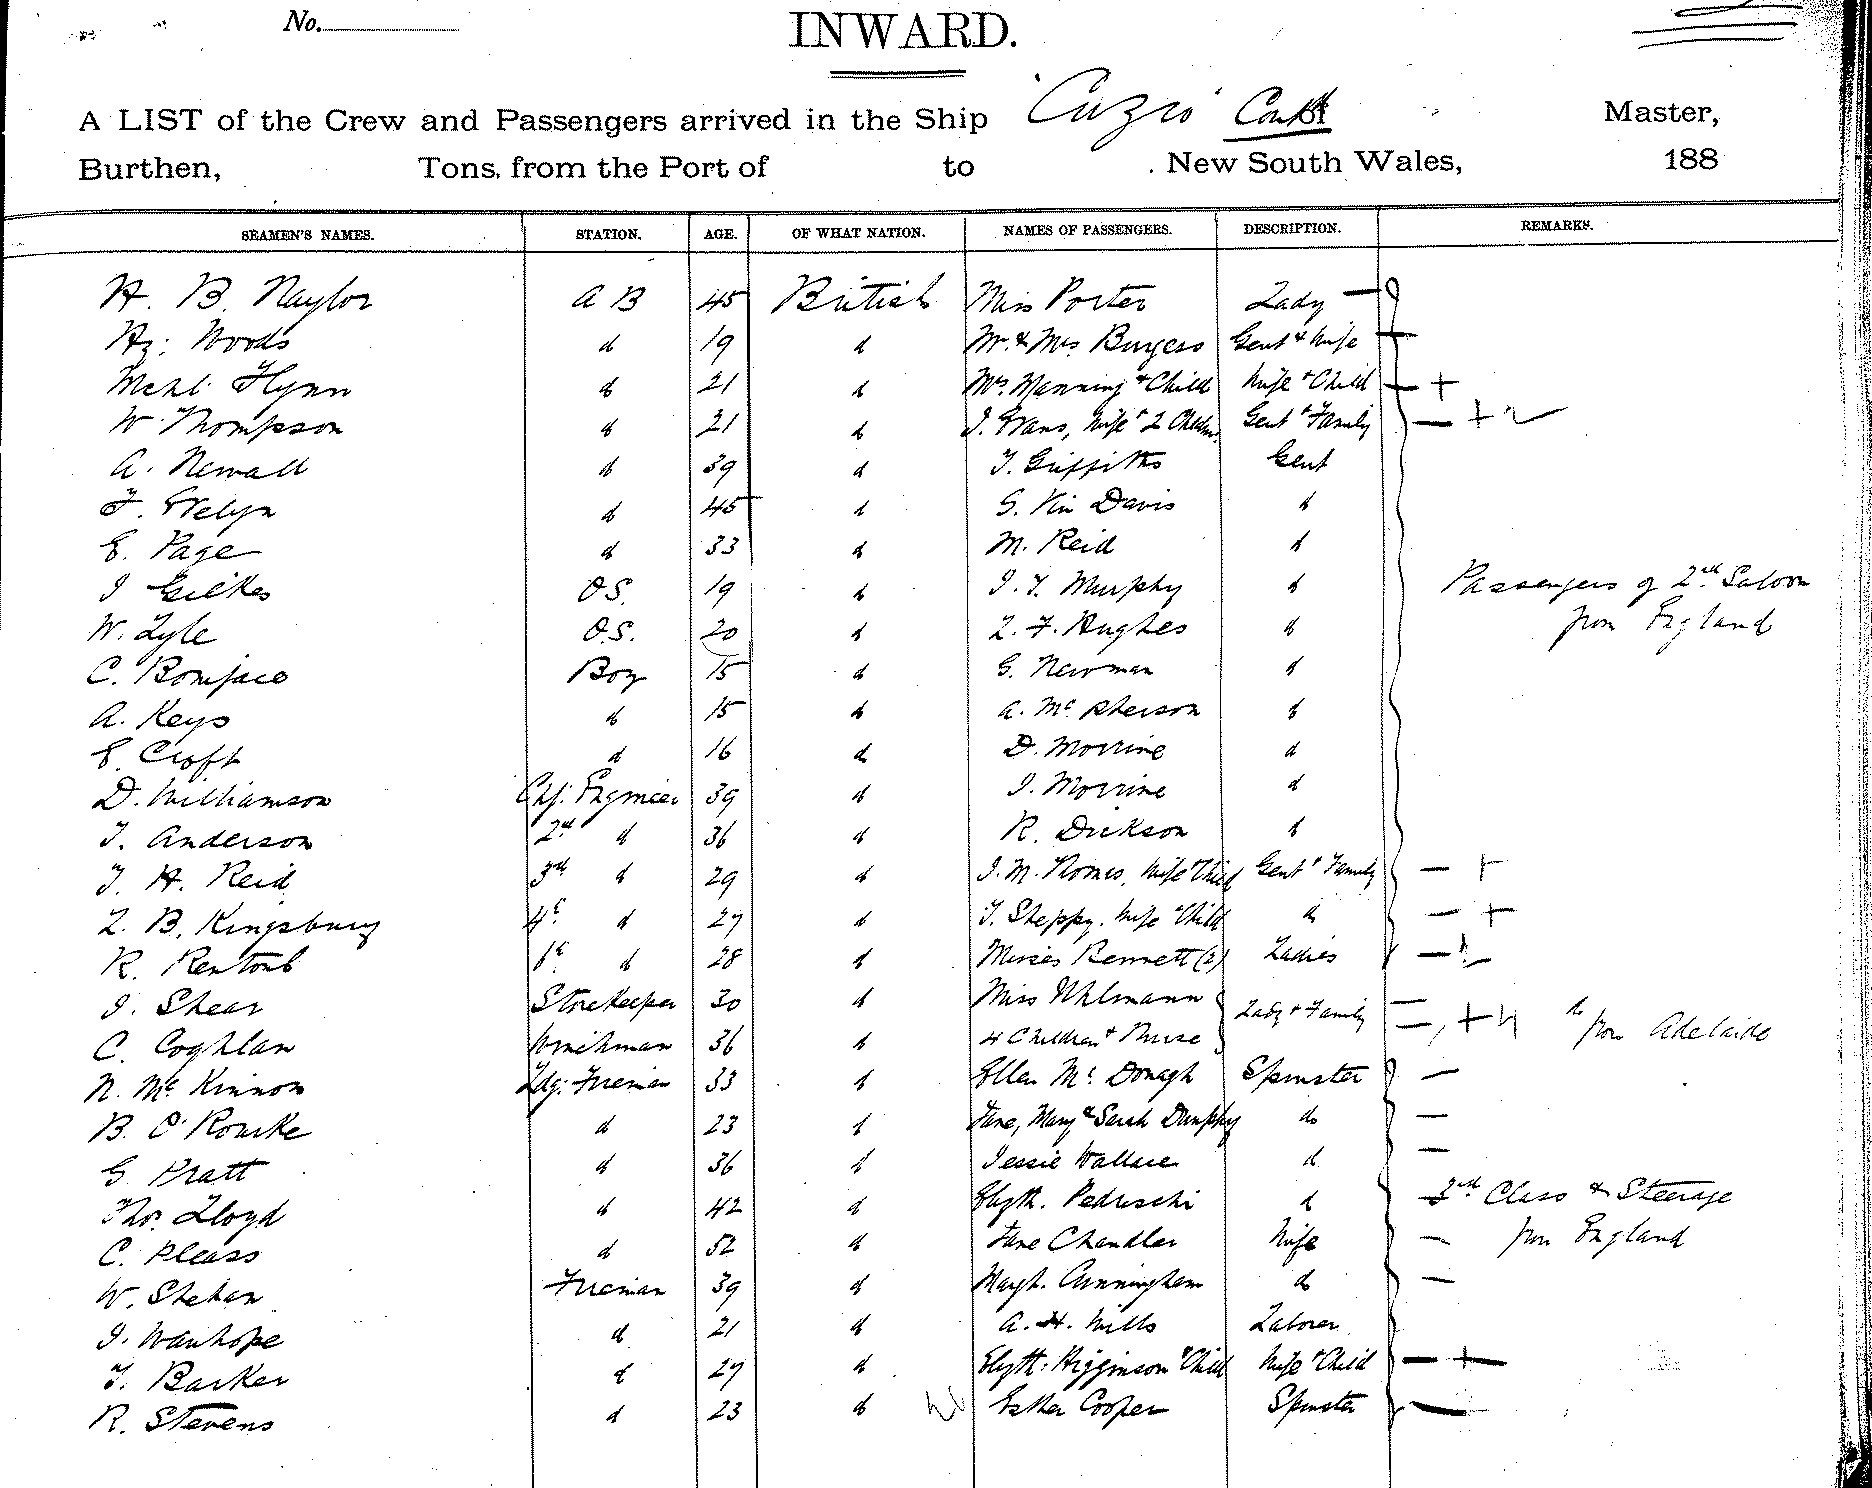 No.
INWARD.
A LIST of the Crew and Passengers arrived in the Ship "Cuzco" Contd Master,
Burthen, Tons, from the Port of to New South Wales, 188
SEAMEN'S NAMES. STATION. AGE. OF WHAT NATION. NAMES OF PASSENGERS. DESCRIPTION. REMARKS.
H. B. Naylor A B 45 British Miss Porter Lady
Hy: Woods d 19 d Mr. & Mrs. Burgess Gent & Wife
Mchl. Flynn d 21 d Mrs. Manning & Child Wife & Child
W Thompson d 21 d J. Evans, Wife & 2 Chldn. Gent & Family
A. Newall d 39 d T. Griffiths Gent
F. Evelyn d 45 d G. Davis d
E. Page d 33 d M. Reid d
J Gilkes O.S. 19 d J. T. Murphy d Passengers of 2nd Saloon
W. Lyle O.S. 20 d L. F. Hughes d from England
C. Boniface Boy 15 d G. Newman d
A. Keys d 15 d A. McPherson d
E Croft d 16 d D. Morrine d
D. Williamson Chf: Engineer 39 d J. Morrine d
T. Anderson 2nd d 36 d R. Dickson d
T. H. Reid 3rd d 29 d J. M. Wife & Child Gent & Family
L. B. Kingsbury 4th d 27 d T. Sheppy. Wife & Child d
R. d 28 d Misses Bennett (2) Ladies
J. Shear Storekeeper 30 d Miss Uhlmann
C. Coghlan Winchman 36 d 4 Children & Nurse Lady & Family do from Adelaide
N. McKinnon Ldg: Fireman 33 d Ellen McDonagh Spinster
B. O'Rourke d 23 d Jane, Mary & Sarah Dunphy do
G Pratt d 36 d Jessie Wallace d
Thos. Lloyd d 42 d Elizth. Pedreschi d 3rd Class & Steerage
C. Pleass d 52 d Jane Chandler Wife from England
W. Shehan Fireman 39 d Margt. Cunningham do
J. Wanhope d 21 d A. H. Mills Laborer
T. Barker d 27 d Elizth: Higginson & Child Wife & Child
R. Stevens d 23 d Esther Cooper Spinster